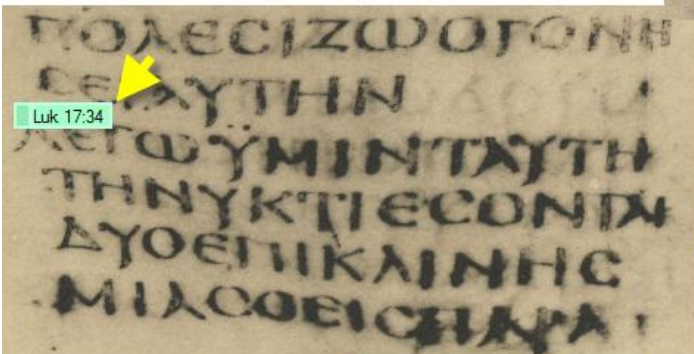 ΠΟΛΕCΙΖΩΟΓΟΝΗ
CΕΙΑΥΤΗΝ
Luk 17:34
ΛΕΓΩΫΜΙΝΤΑΥΤΗ
ΤΗΝΥΚΤΙΕCΟΝΤΑΙ
ΔΥΟΕΠΙΚΛΙΝΗC
ΜΙΑCΟΕΙCΠΑΡΑ